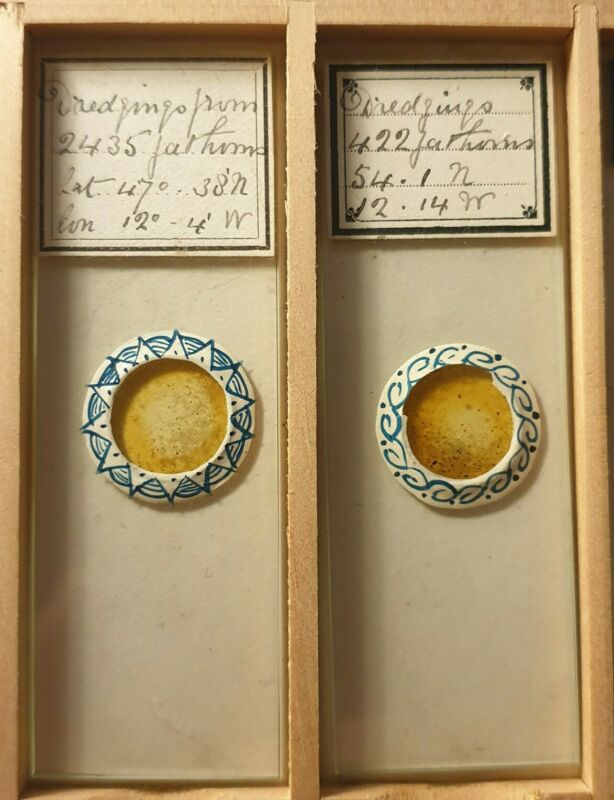 Dredgings from
2435 fathoms
Lat. 47° . 38' N
Lon 12° - 4' W
Dredgings
422 fathoms
54 . 1 N
12 . 14 W